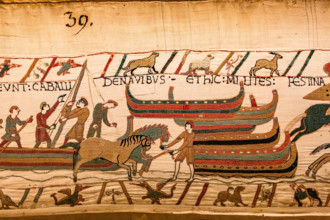 39.
EVNT: CABALLI DENAVIBUS:- ETHIC: MILITES: FESTINA